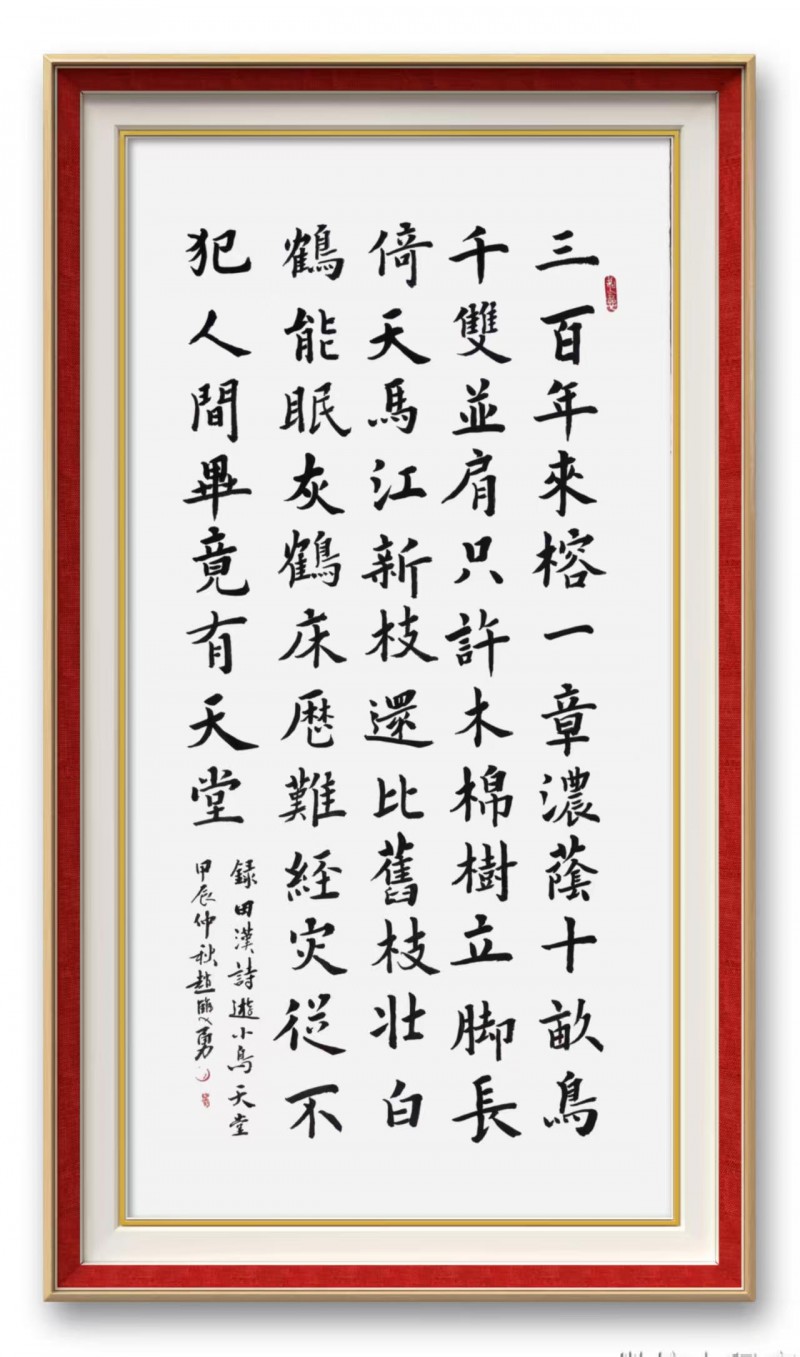 三百年來榕一章濃蔭十畝鳥
千雙並肩只許木棉樹立脚長
倚天馬江新枝還比舊枝壯白
鶴能眠灰鶴床歷難経灾從不
犯人間畢竟有天堂
録田漢詩遊小鳥天堂
甲辰仲秋趙勇